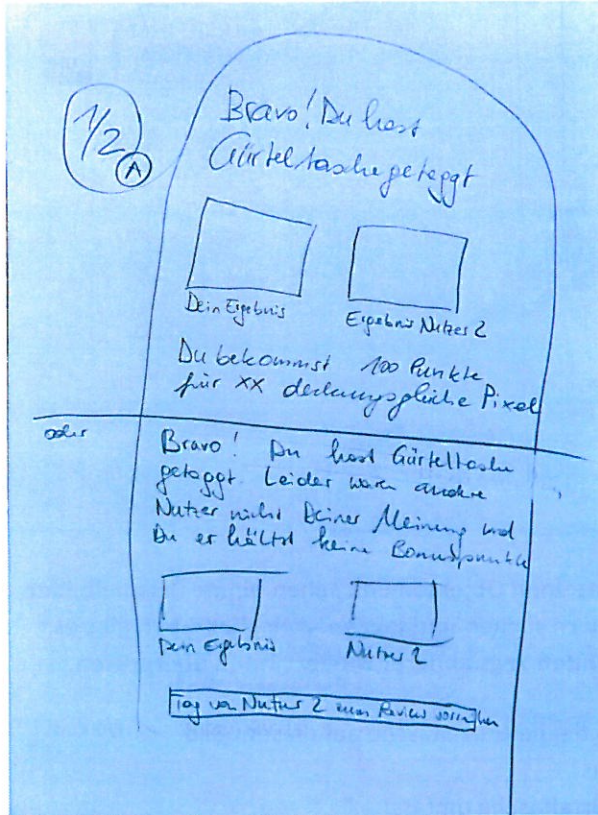 1/2
A
Bravo! Du hast
Gürteltasche getaggt
Dein Ergebnis
Ergebnis Nutzer 2
Du bekommst 100 Punkte
für XX deckungsgleiche Pixel
oder
Bravo! Du hast Gürteltasche
getaggt. Leider waren andere
Nutzer nicht Deiner Meinung und
Du erhältst keine Bonuspunkte
Dein Ergebnis
Nutzer 2
Tag von Nutzer 2 zum Review